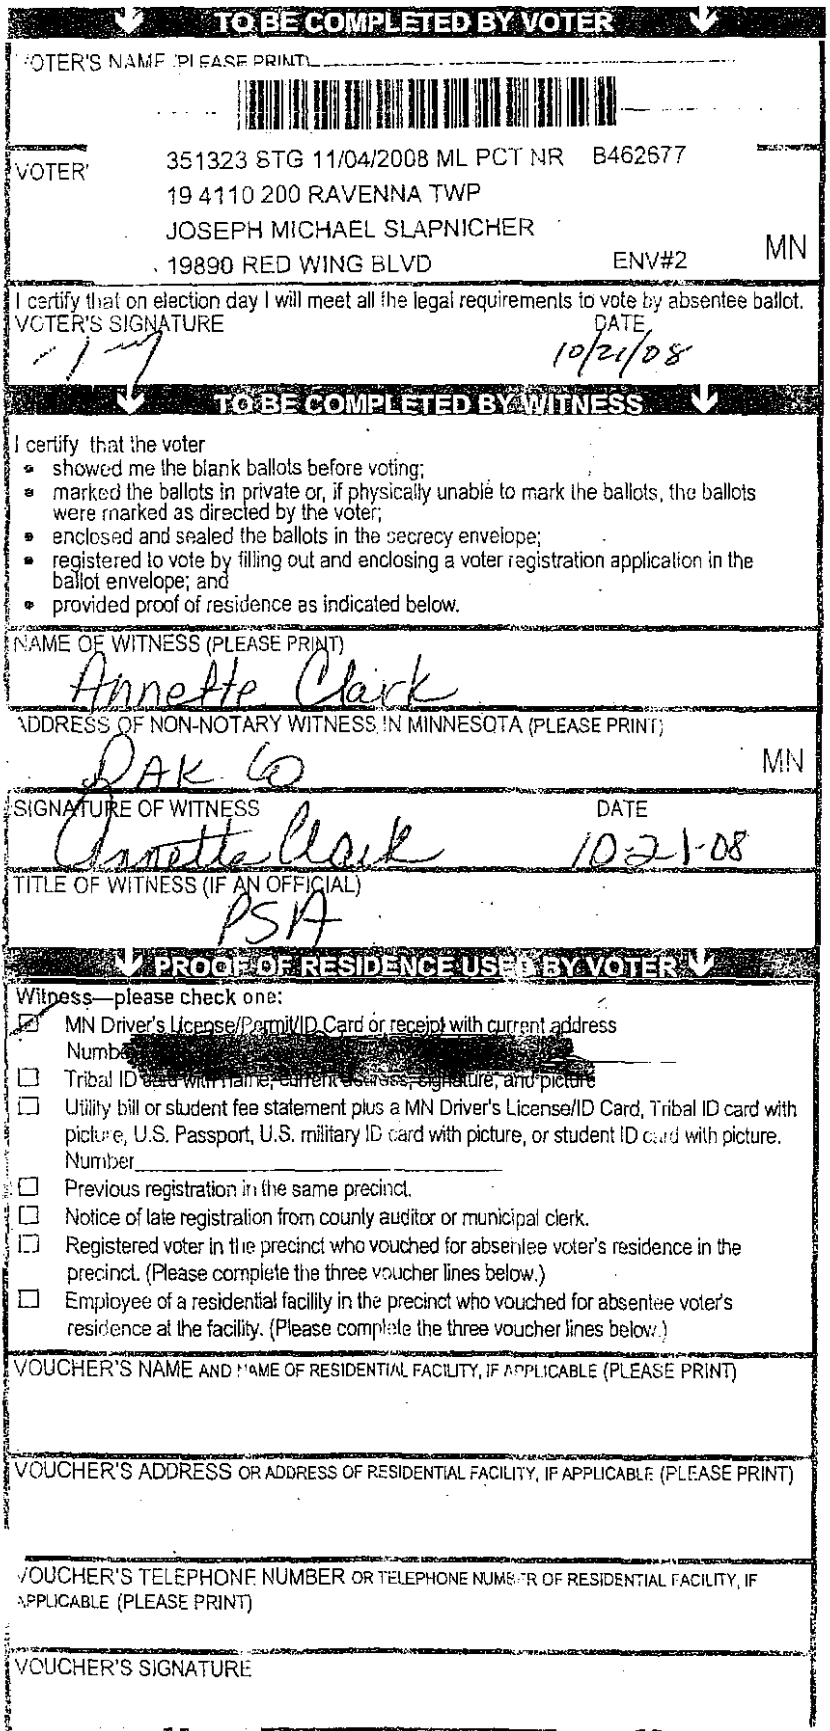 TO BE COMPLETED BY VOTER
VOTER'S NAME (PLEASE PRINT)
VOTER'
351323 STG 11/04/2008 ML PCT NR B462677
19 4110 200 RAVENNA TWP
JOSEPH MICHAEL SLAPNICHER
19890 RED WING BLVD ENV#2 MN
I certify that on election day I will meet all the legal requirements to vote by absentee ballot.
VOTER'S SIGNATURE DATE
10/21/08
TO BE COMPLETED BY WITNESS
I certify that the voter
• showed me the blank ballots before voting;
• marked the ballots in private or, if physically unable to mark the ballots, the ballots
were marked as directed by the voter;
• enclosed and sealed the ballots in the secrecy envelope;
• registered to vote by filling out and enclosing a voter registration application in the
ballot envelope; and
• provided proof of residence as indicated below.
NAME OF WITNESS (PLEASE PRINT)
Annette Clark
ADDRESS OF NON-NOTARY WITNESS IN MINNESOTA (PLEASE PRINT)
DAK CO MN
SIGNATURE OF WITNESS DATE
Annette Clark 10-21-08
TITLE OF WITNESS (IF AN OFFICIAL)
PSA
PROOF OF RESIDENCE USED BY VOTER
Witness—please check one:
MN Driver's License/Permit/ID Card or receipt with current address
Numbe
Tribal ID card with name, current address, signature, and picture
Utility bill or student fee statement plus a MN Driver's License/ID Card, Tribal ID card with
picture, U.S. Passport, U.S. military ID card with picture, or student ID card with picture.
Number
Previous registration in the same precinct.
Notice of late registration from county auditor or municipal clerk.
Registered voter in the precinct who vouched for absentee voter's residence in the
precinct. (Please complete the three voucher lines below.)
Employee of a residential facility in the precinct who vouched for absentee voter's
residence at the facility. (Please complete the three voucher lines below.)
VOUCHER'S NAME AND NAME OF RESIDENTIAL FACILITY, IF APPLICABLE (PLEASE PRINT)
VOUCHER'S ADDRESS OR ADDRESS OF RESIDENTIAL FACILITY, IF APPLICABLE (PLEASE PRINT)
VOUCHER'S TELEPHONE NUMBER OR TELEPHONE NUMBER OF RESIDENTIAL FACILITY, IF
APPLICABLE (PLEASE PRINT)
VOUCHER'S SIGNATURE